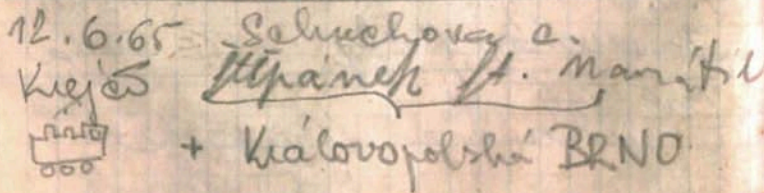 12.6.65 Schuchova c.
Krejčí Štěpánek st. Navrátil
+ Královopolská BRNO